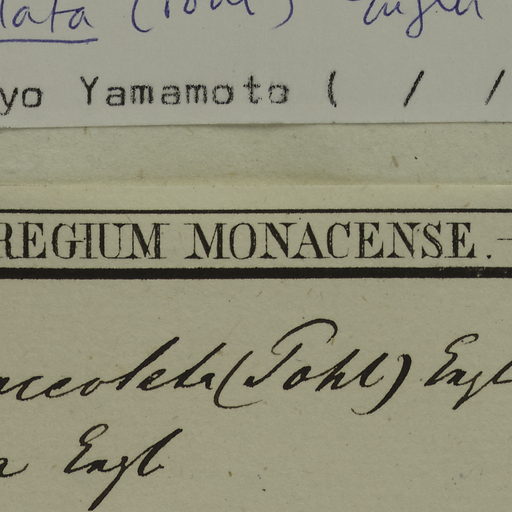 lata (Pohl) Engler
yo Yamamoto ( / /
REGIUM MONACENSE.—
aceolata (Pohl) Engl
a Engl.